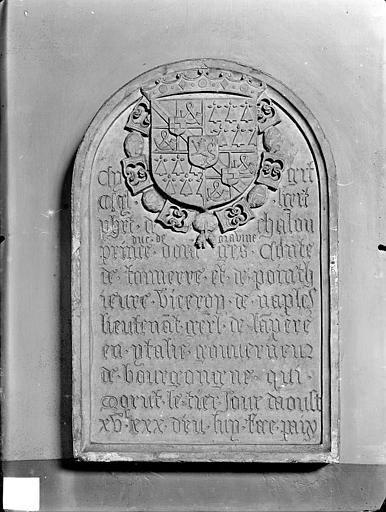 Chy gist
Phrt · d chalon
duc · de · gravine
prince · dorenges · Conte
de · tonnerre · et · de · ponth
ieure · Viceroy · de · naples
lieutenãt · gerl · de · lãpere
en · ytalie · gouverneur
de · bourgongne · qui ·
le · tier · Jour · daoust
xvc · xxx · dieu · luy · face · paix